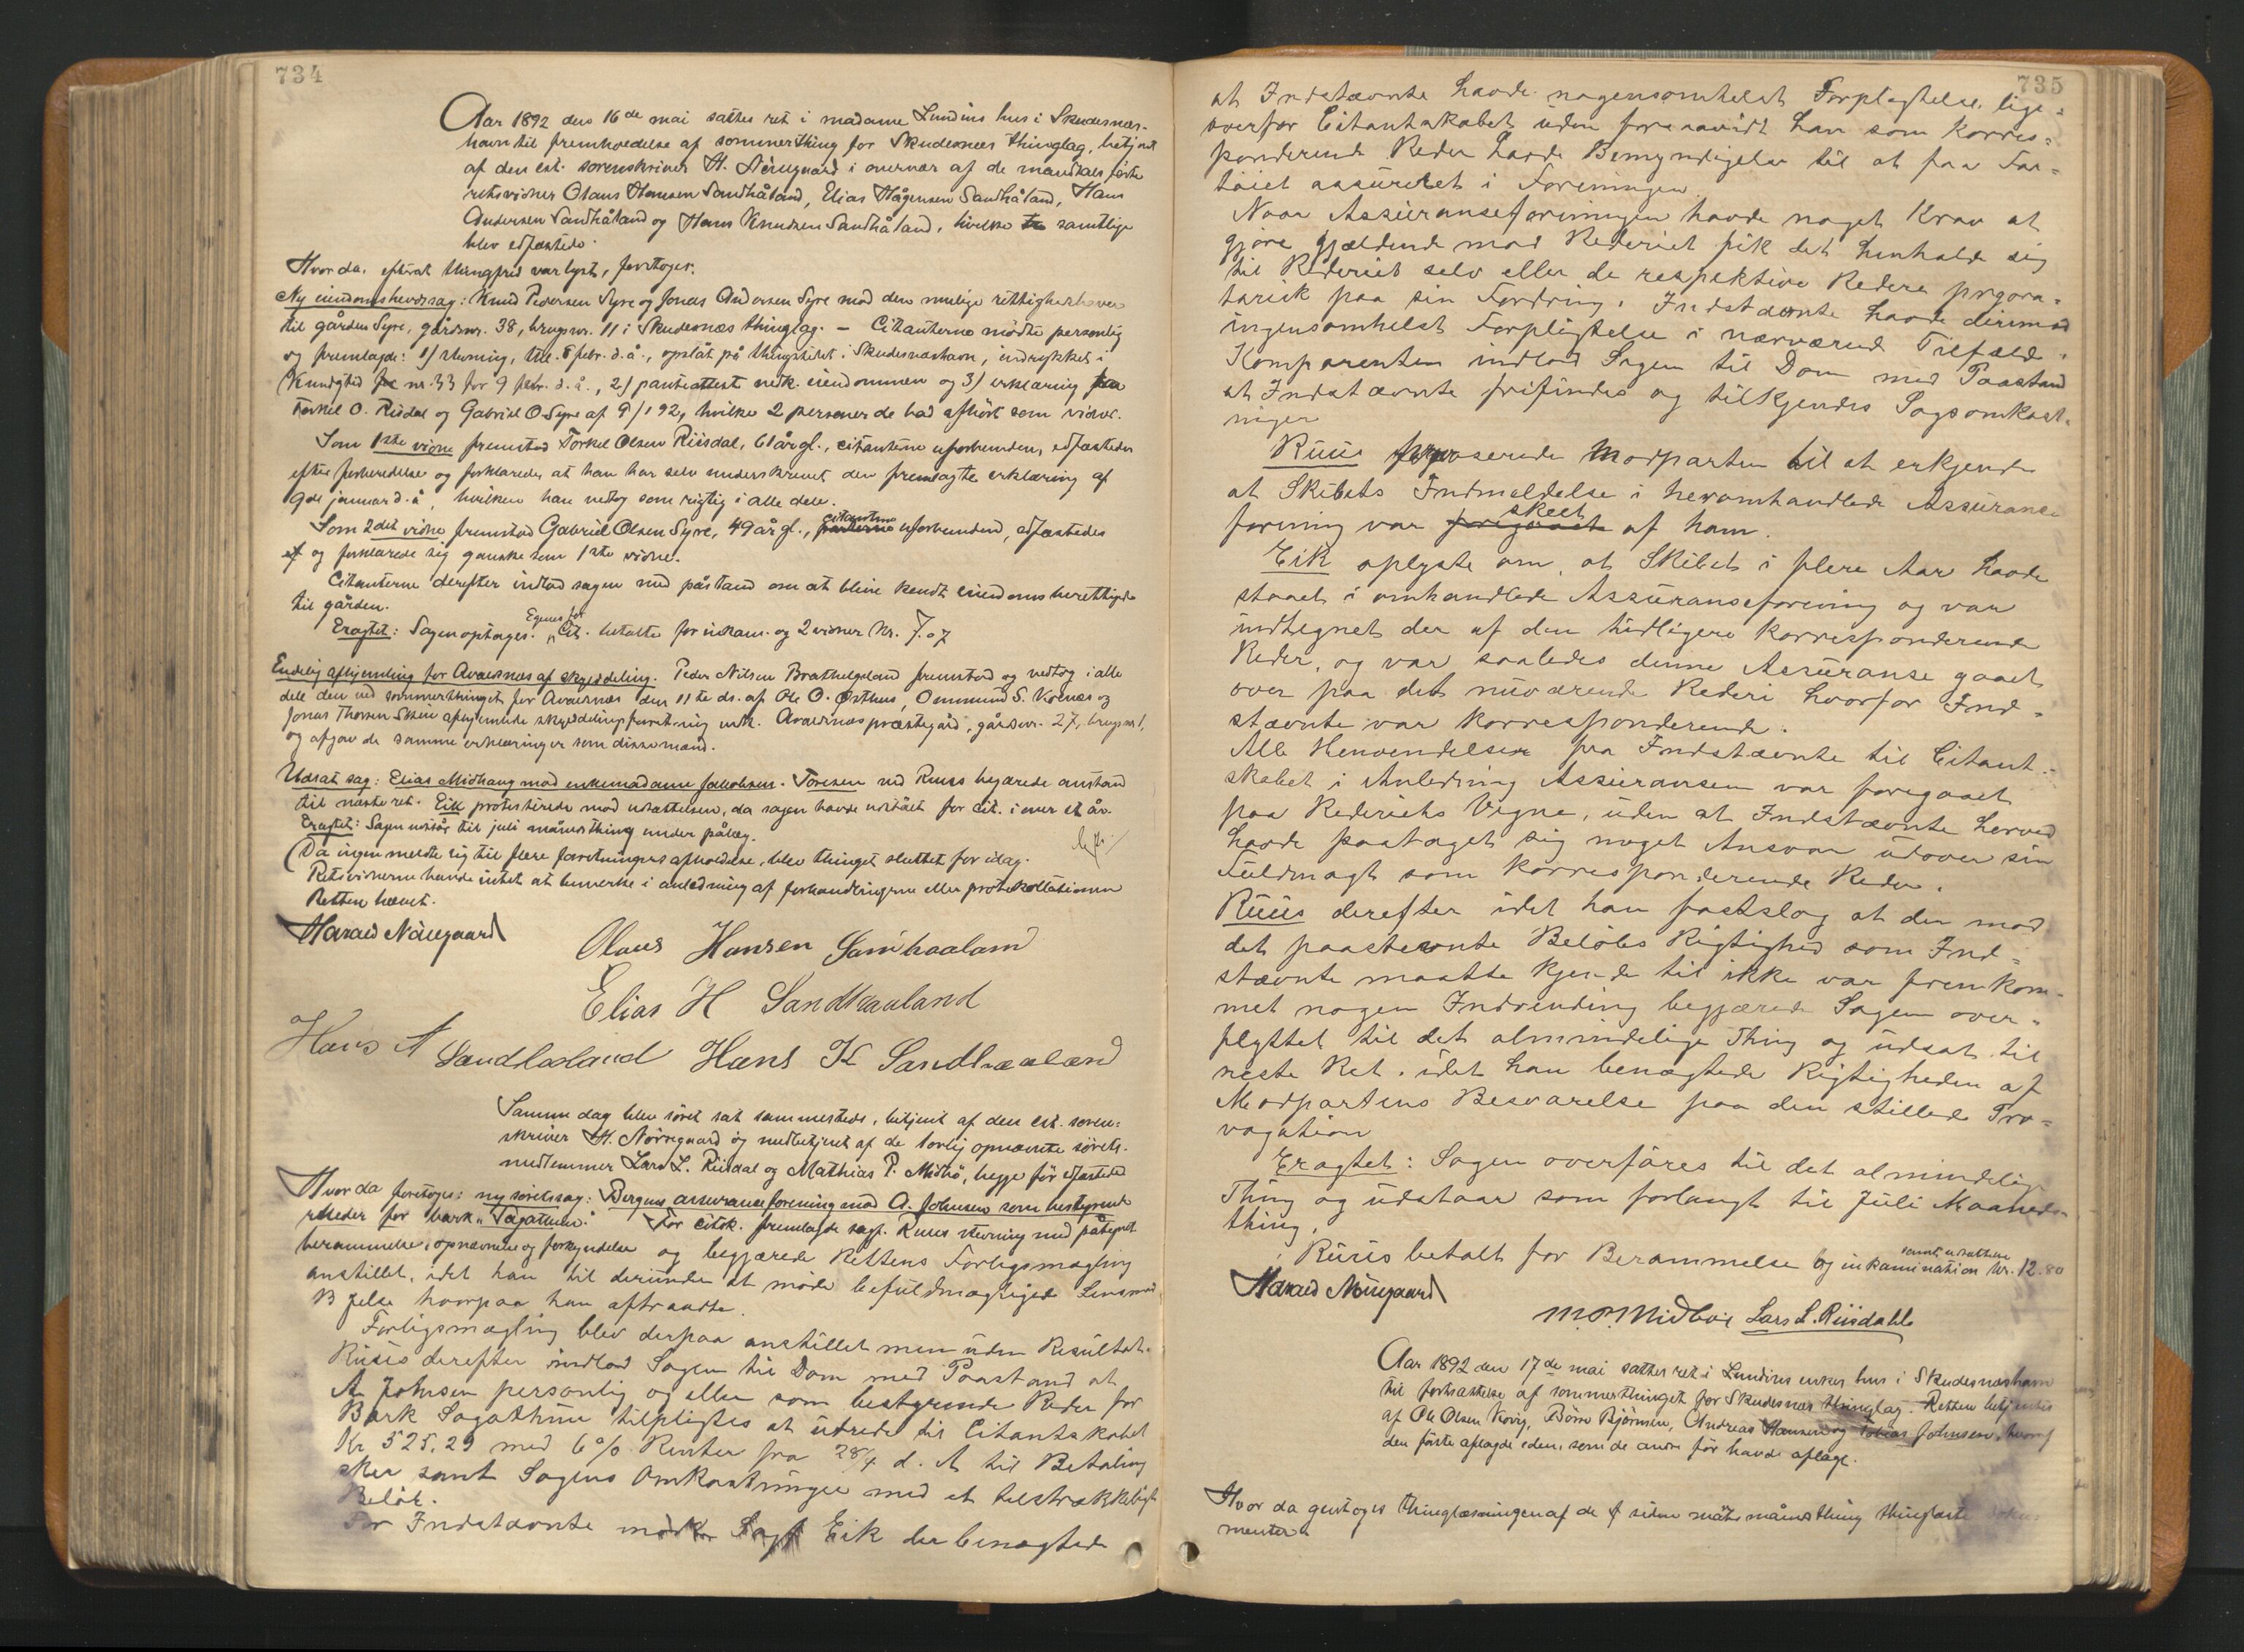 734
Aar 1892 den 16de mai sattes ret i madame Lundins hus i Skudesnæs-
havn til fremholdelse af sommerthing for Skudesnes thinglag, betjent
af den cst. sorenskriver H. Nörregaard i overvær af de mandtalsförte
retsvidner Olaus Hansen Sandhåland, Elias Hågensen Sandhåland, Hans
Andersen Sandhåland og Hans Knudsen Sandhåland, hvilke samtlige
blev edfæstede.
Hvor da, efterat thingfred var lyst, foretoges:
Ny eiendomshevdssag: Knud Pedersen Syre og Jonas Andersen Syre mod den mulige rettighedshaver
til gården Syre, gårdsnr. 38, brugsnr. 11 i Skudesnæs thinglag. – Citanterne mödte personlig
og fremlagde: 1) stevning, 5 febr. d.å., opslåt på thingstedet i Skudesnæshavn, indrykket i
Kundgted nr. 33 for 9 febr. d.å., 2) panteattest vedk. eiendommen og 3) erklæring fra
Torkel O. Risdal og Gabriel O Syre af 9/1 92, hvilke 2 personer de bad afhört som vidner.
Som 1ste vidne fremstod Torkel Olsen Riisdal, 61 år gl., citanterne uforbunden, edfæstedes
efter forberedelse og forklarede, at han har selv underskrevet den fremlagte erklæring af
9de januar d.å, hvilken han vedtog som rigtig i alle dele.
Som 2det vidne fremstod Gabriel Olsen Syre, 49 år gl., parterne citanterne uforbunden, edfæstedes
og forklarede sig ganske som 1ste vidne.
Citanterne derefter indlod sagen med påstand om at blive kendt eiendomsberettigede
til gården.
Eragtet: Sagen optages. Cit. betalte for inkam. og 2 vidner Kr. 7.07
Endelig afhjemling for Avaldsnes af skyddeling. Peder Nilsen Bratthelgeland fremstod og vedtog i alle
dele den ved sommerthinget for Avaldsnæs den 11te ds. af Ole O. Østhus, Ommund S. Visnæs og
Jonas Thorsen Skeie afhjemlede skyddelingsforretning vedk. Avaldsnæs præstegård, gårdsnr. 27, brugsnr 1,
og afgav de samme erklæringer som disse mænd.
Udsat sag: Elias Midhaug mod enkemadame Jakobsen. Toresen ved Ruus begærede anstand
til næste ret. Eik protesterede mod udsættelsen, da sagen havde udstået for cit. i over et år.
Eragtet: Sagen udstår til juli månedsthing under pålæg.
Da ingen meldte sig til flere forretningers afholdelse, blev thinget sluttet for idag.
Retsvidnerne havde intet at bemerke i anledning af forhandlingerne eller protokollationen
Retten hævet.
Harald Nörregaard
Olaus Hansen Sandhaaland
Elias H Sandhaaland
Hans A Sandhaaland Hans K Sandhaaland
Samme dag blev söret sat sammesteds, betjent af den cst. soren-
skriver H. Nörregaard og medbetjent af de lovlig opnævnte sörets-
medlemmer Lars L. Riisdal og Mathias P. Midbö, begge för edfæstede
Hvor da foretoges: ny söretssag: Bergens assuranceforening mod A. Johnsen som bestyrende
rheder for bark "Sagathun". For citsk. fremlagde sagf. Ruus stevning med påtegnet
berammelse, opnævnelse og forkyndelse og begjærede Rettens Forligsmægling
anstillet, idet han til derunder at møde befuldmægtigede Lensmand
B Jelse hvorpaa han aftraadte.
Forligsmægling blev derpaa anstillet men uden Resultat.
Ruus derefter indlod Sagen til Dom med Paastand at
A Johnsen personlig og eller som bestyrende Reder for
Bark Sagathun tilpligtes at utrede til Citantskabet
Kr 525,29 med 6% Renter fra 28/4 d. A til Betaling
sker samt Sagens Omkostninger med et tilstrækkeligt
Beløb.
For Indstævnte mødte Sagf Eik der benægtede
735
at Indstævnte havde nogensomhelst Forpligtelse lige-
overfor Citantskabet uden forsaavidt han som korres-
ponderende Reder havde Bemyndigelse til at faa Far-
töiet assureret i Foreningen.
Naar Assuranseforeningen havde noget Krav at
gjøre gjældende mod Rederiet fik det henholde sig
til Rederiet selv eller de respektive Redere prgora-
tarisk paa sin Fordring. Indstævnte havde derimod
ingensomhelst Forpligtelse i nærværende Tilfælde.
Komparenten indlod Sagen til Dom med Paastand
at Indstævnte frifindes og tilkjendes Sagsomkost-
ninger
Ruus provoserede Modparten til at erkjende
at Skibets Indmeldelse i heromhandlede Assurance
forening var foregaaet skeet af ham.
Eik oplyste om, at Skibet i flere Aar havde
staaet i omhandlede Assuranseforening og var
indtegnet der af den tidligere korresponderende
Reder, og var saaledes denne Assuranse gaaet
over paa det nuværende Rederi hvorfor Ind-
stævnte var korresponderende.
Alle Henvendelser fra Indstævnte til Citant-
skabet i Anledning Assuransen var foregaaet
paa Rederiets Vegne, uden at Indstævnte herved
havde paataget sig noget Ansvar udover sin
Fuldmagt som korresponderende Reder.
Ruus derefter idet han fastslog at der mod
det paastevnte Beløbs Rigtighed som Ind-
stævnte maatte kjende til ikke var fremkom-
met nogen Indvending begjærede Sagen over-
flyttet til det almindelige Thing og udsat til
neste Ret. idet han benægtede Rigtigheden af
Modpartens Besvarelse paa den stillede Pro-
vogation
Eragtet: Sagen overføres til det almindelige
Thing og udstaar som forlangt til Juli Maaneds
thing.
Ruus betalt for Berammelse og inkamination samt udsættelse kr. 12.80
Harald Nörregaard
M. P. Midböe Lars L. Riisdahl
Aar 1892 den 17de mai sattes ret i Lundins enkes hus i Skudesnæshavn
til fortsættelse af sommerthinget for Skudesnæs thinglag. Retten betjentes
af Ole Olsen Kvög, Börre Björnsen, Andreas Hansen og Tobias Johnsen, hvoraf
den förste aflagde eden, som de andre för havde aflagt.
Hvor da foretoges thinglæsningen af de siden månedsthing thinglæste doku-
menter